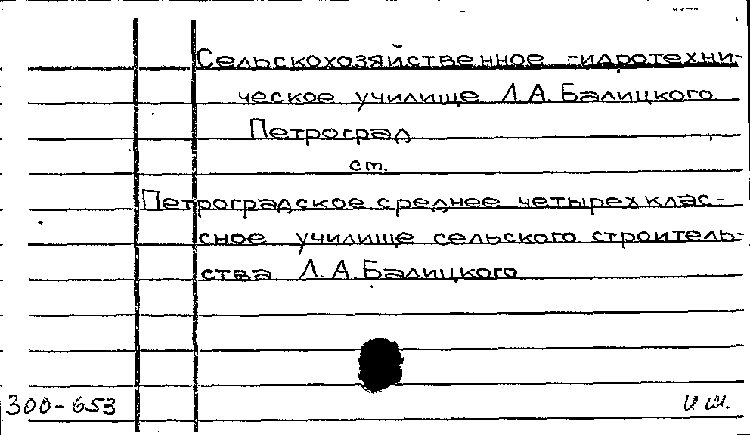 Сельскохозяйственное гидротехни-
ческое училище Л.А.Балицкого
Петроград
ст.
Петроградское среднее четырехклас-
сное училище сельского строитель-
ства Л.А.Балицкого
300-653 И.Ш.